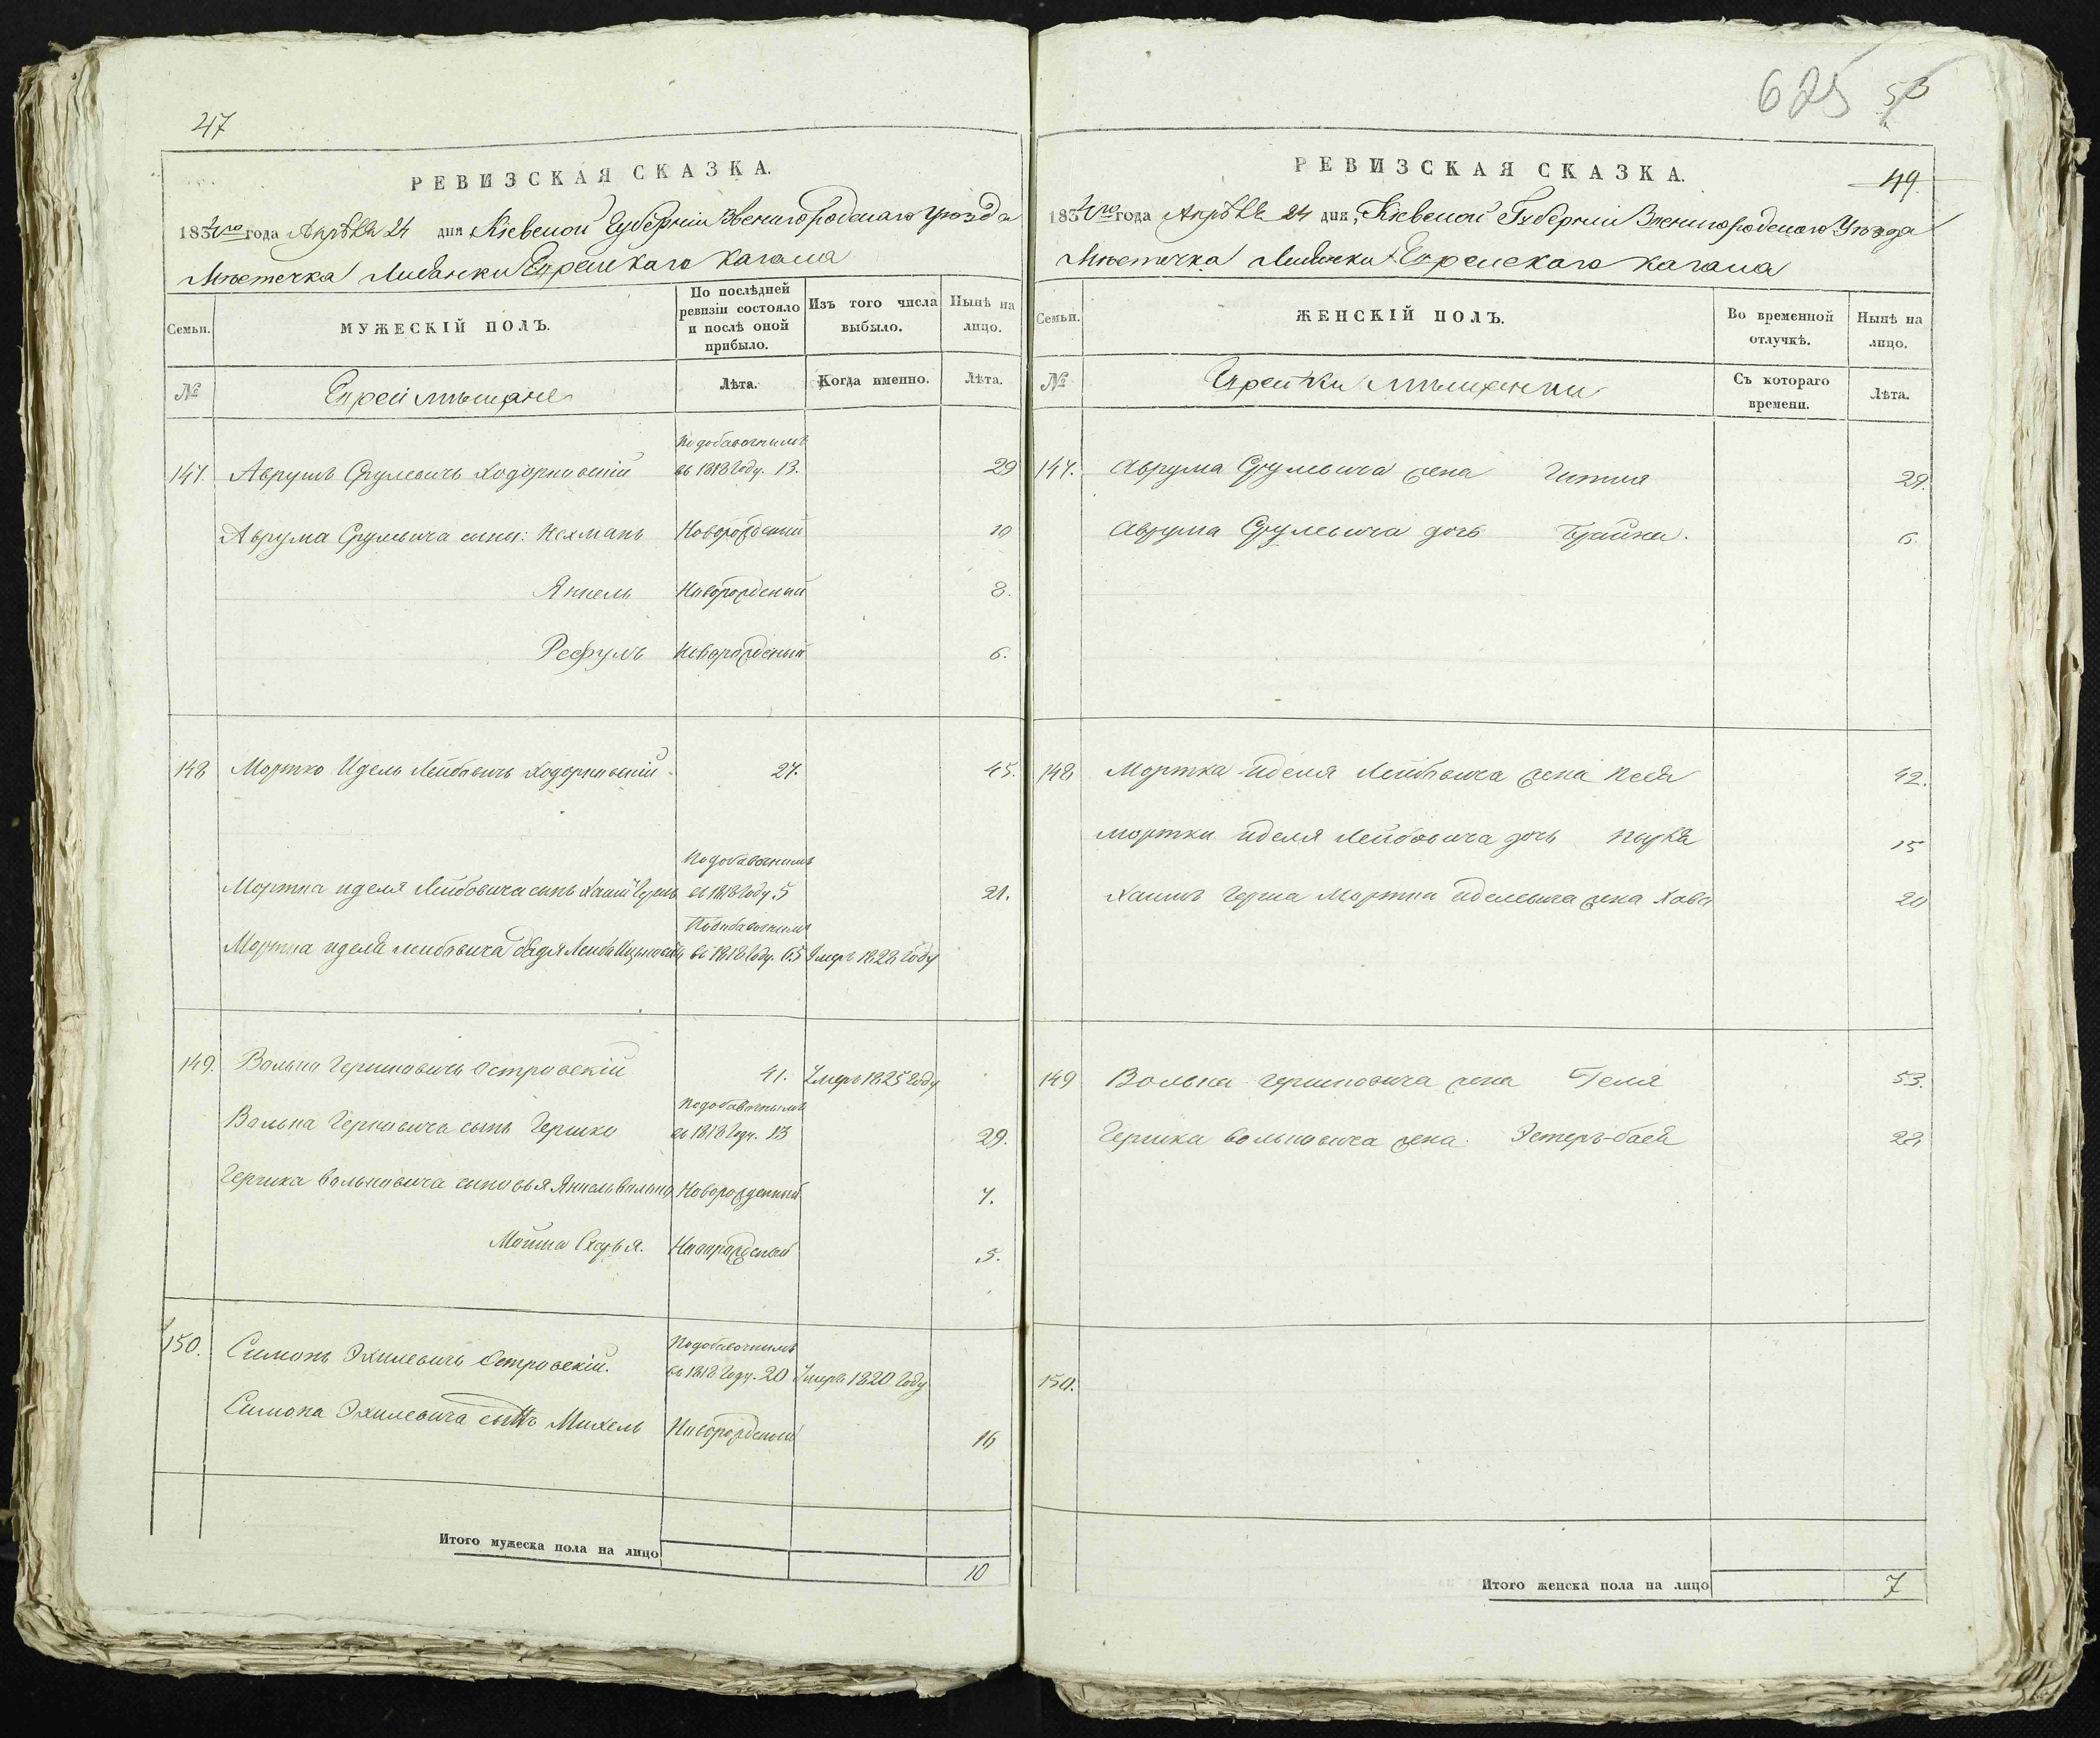 47
РЕВИЗСКАЯ СКАЗКА.
1834го года Апрѣля 24 дня Кіевской Губерніи Звенигородскаго Уѣзда
Мѣстечка Лисянки Еврейскаго Кагала
Семьи.
МУЖЕСКІЙ ПОЛЪ.
По послѣдней ревизіи состояло и послѣ оной прибыло.
Изъ того числа выбыло.
Нынѣ на лицо.
№
Евреи мѣщане
Лѣта.
Когда именно.
Лѣта.
147. Аврумъ Срулевичъ Ходорковскій По добавочнымъ въ 1818 году. 13. 29
Аврума Срулевича сыны: Нехманъ Новорожденый 10
Янкель Новорожденый 8.
Рефулъ Новорожденый 6.
148 Мортко Идель Лейбовичъ Ходорковскій 27. 45.
Мортка Иделя Лейбовича сынъ Хаимъ Гершъ По добавочнымъ въ 1818 году. 5 21.
Мортка Иделя Лейбовича дядя Лейба Ицковичъ По добавочнымъ въ 1818 году. 65 Умеръ 1828 году
149. Волько Гершковичъ Островскій 41. Умеръ 1825 году
Волька Герковича сынъ Гершко По добавочнымъ въ 1818 году. 13 29.
Гершка Вольковича сыновья Янкель Волько Новорожденный 7.
Мошко Новорожденый 5.
150. Симонъ Эхилевичъ Островскій. По добавочнымъ въ 1818 году. 20 Умеръ 1820 году
Симона Эхилевича сынъ Михель Новорожденый 16
Итого мужеска пола на лицо 10
625 56
49
РЕВИЗСКАЯ СКАЗКА.
1834го года Апрѣля 24 дня, Кіевской Губерніи Звенигородскаго Уѣзда
Мѣстечка Лисянки Еврейскаго Кагала
Семьи.
ЖЕНСКІЙ ПОЛЪ.
Во временной отлучкѣ.
Нынѣ на лицо.
№
Еврейки мѣщанки
Съ котораго времени.
Лѣта.
147. Аврума Срулевича жена Гитля 29.
Аврума Срулевича дочь Брайна. 6.
148 Мортка Иделя Лейбовича жена Песя 42.
Мортки Иделя Лейбовича дочь 15
Хаимъ Герша Мортки Иделевича жена Хава 20
149 Волька Гершковича жена Геля 53.
Гершка Вольковича жена Эстеръ-бася 28.
150.
Итого женска пола на лицо 7